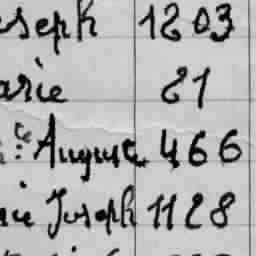 seph 1203
arie 21
: Auguste 466
ie Joseph 1128